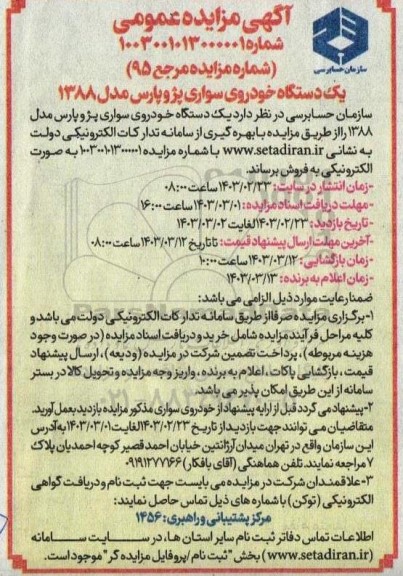 آگهی مزایده عمومی
شماره ۱۰۰۳۰۰۱۰۱۳۰۰۰۰۰۱
(شماره مزایده مرجع ۹۵)
سازمان حسابرسی
یک دستگاه خودروی سواری پژو پارس مدل ۱۳۸۸
سازمان حسابرسی در نظر دارد یک دستگاه خودروی سواری پژو پارس مدل
۱۳۸۸ را از طریق مزایده با بهره گیری از سامانه تدارکات الکترونیکی دولت
به نشانی www.setadiran.ir با شماره مزایده ۱۰۰۳۰۰۱۰۱۳۰۰۰۰۰۱ به صورت
الکترونیکی به فروش برساند.
-زمان انتشار در سایت: ۱۴۰۳/۰۲/۲۳ ساعت ۰۸:۰۰
-مهلت دریافت اسناد مزایده: ۱۴۰۳/۰۳/۰۱ ساعت ۱۶:۰۰
-تاریخ بازدید: ۱۴۰۳/۰۲/۲۳ لغایت ۱۴۰۳/۰۳/۰۲
-آخرین مهلت ارسال پیشنهاد قیمت: تا تاریخ ۱۴۰۳/۰۳/۱۲ ساعت ۰۸:۰۰
-زمان بازگشایی: ۱۴۰۳/۰۳/۱۲ ساعت ۱۰:۰۰
-زمان اعلام به برنده: ۱۴۰۳/۰۳/۱۳
ضمنا رعایت موارد ذیل الزامی می باشد:
۱-برگزاری مزایده صرفا از طریق سامانه تدارکات الکترونیکی دولت می باشد و
کلیه مراحل فرآیند مزایده شامل خرید و دریافت اسناد مزایده (در صورت وجود
هزینه مربوطه)، پرداخت تضمین شرکت در مزایده (ودیعه)، ارسال پیشنهاد
قیمت، بازگشایی پاکات، اعلام به برنده، واریز وجه مزایده و تحویل کالا در بستر
سامانه از این طریق امکان پذیر می باشد.
۲-پیشنهاد می گردد قبل از ارایه پیشنهاد از خودروی سواری مذکور مزایده بازدید بعمل آورید.
متقاضیان می توانند جهت بازدید از تاریخ ۱۴۰۳/۰۲/۲۳ لغایت ۱۴۰۳/۰۳/۰۱ به آدرس
این سازمان واقع در تهران میدان آرژانتین خیابان احمد قصیر کوچه احمدیان پلاک
۷ مراجعه نمایند. تلفن هماهنگی (آقای بافکار) ۰۹۱۹۱۲۷۷۱۶۶
۳-علاقمندان شرکت در مزایده می بایست جهت ثبت نام و دریافت گواهی
الکترونیکی (توکن) با شماره های ذیل تماس حاصل نمایند:
مرکز پشتیبانی و راهبری: ۱۴۵۶
اطلاعات تماس دفاتر ثبت نام سایر استان ها، در سایت سامانه
(www.setadiran.ir) بخش "ثبت نام / پروفایل مزایده گر" موجود است.